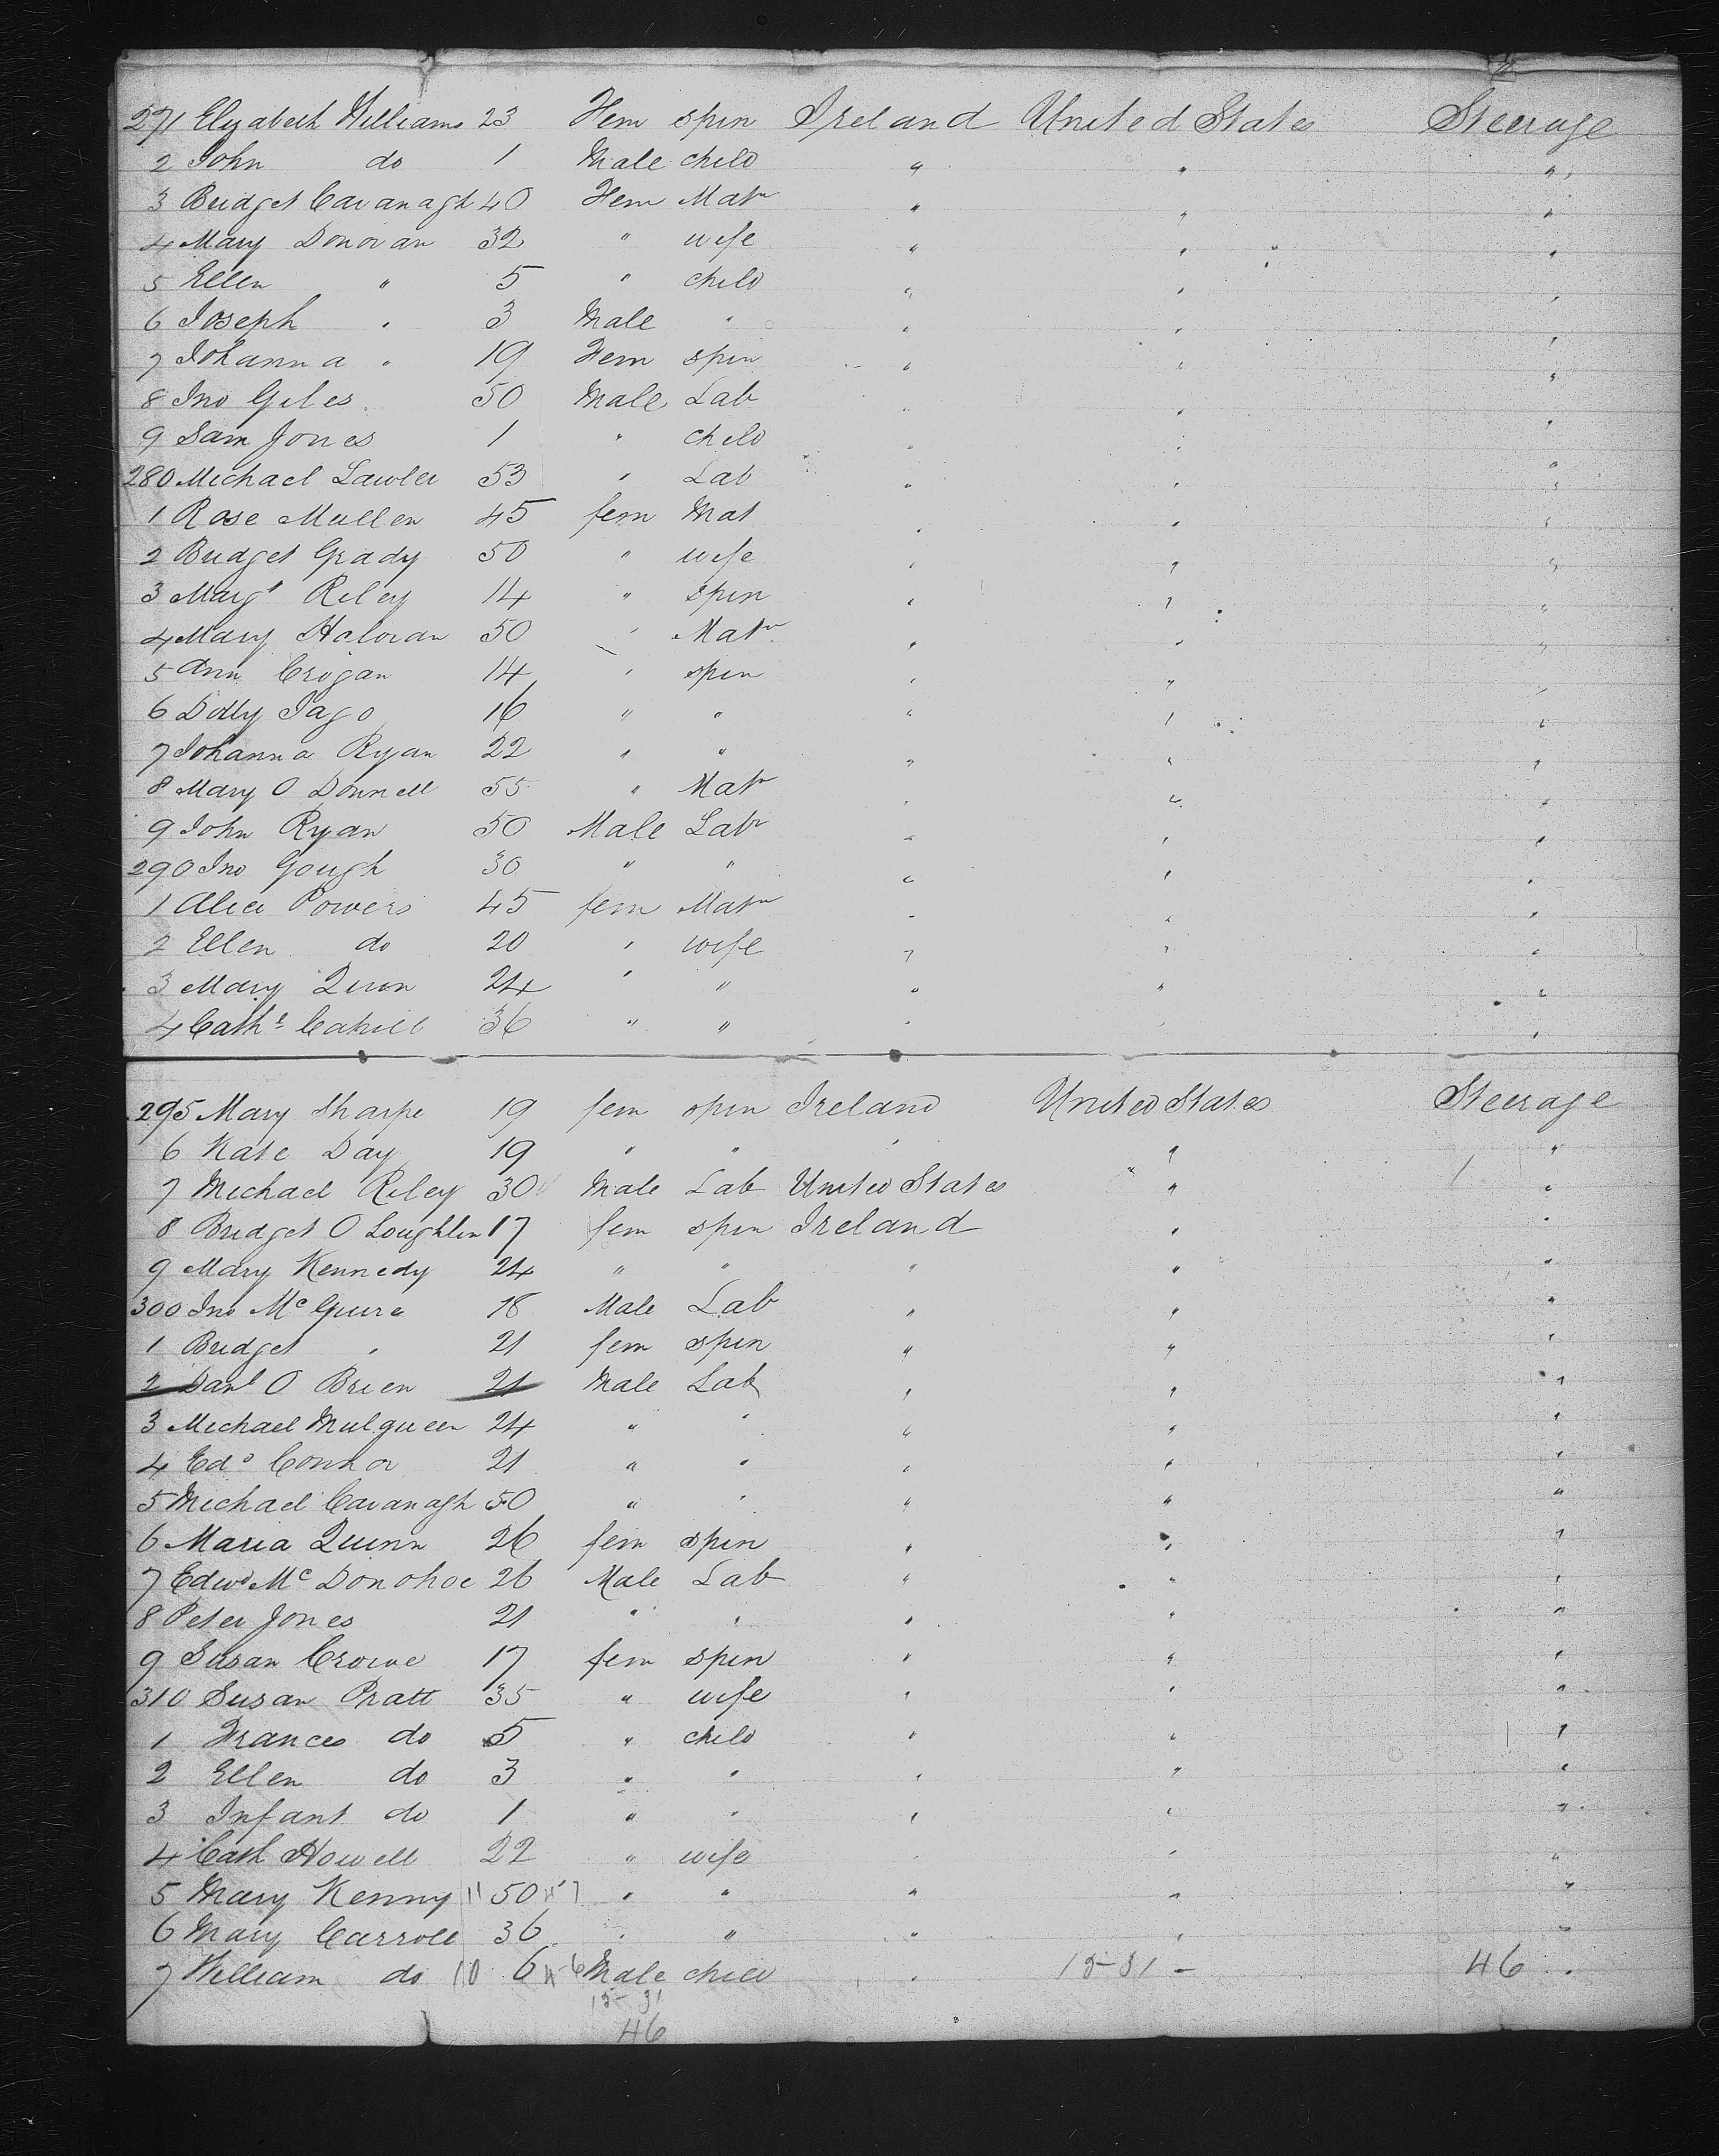 271 Elizabeth Williams 23 Fem spin Ireland United States Steerage
2 John do 1 Male child " " "
3 Bridget Cavanagh 40 Fem Matn " " "
4 Mary Donovan 32 " wife " " "
5 Ellen " 5 " child " " "
6 Joseph " 3 Male " " " "
7 Johanna " 19 Fem spin " " "
8 Jno Giles 50 Male Lab " " "
9 Sam Jones 1 " child " " "
280 Michael Lawler 53 " Lab " " "
1 Rose Mullen 45 fem Mat " " "
2 Bridget Grady 50 " wife " " "
3 Margt Riley 14 " spin " " "
4 Mary Haloran 50 " Matn " " "
5 Ann Crogan 14 " spin " " "
6 Dolly Jago 16 " " " " "
7 Johanna Ryan 22 " " " " "
8 Mary O Donnell 55 " Matn " " "
9 John Ryan 50 Male Labr " " "
290 Jno Gough 30 " " " " "
1 Alice Powers 45 fem Matn " " "
2 Ellen do 20 " wife " " "
3 Mary Quin 24 " " " " "
4 Cathe Cahill 36 " " " " "
295 Mary Sharpe 19 fem spin Ireland United States Steerage
6 Kate Day 19 " " " " "
7 Michael Riley 30 Male Lab United States " "
8 Bridget O Loughlin 17 fem spin Ireland " "
9 Mary Kennedy 24 " " " " "
300 Jno McGuire 18 Male Lab " " "
1 Bridget " 21 fem spin " " "
2 Danl O Brien 21 Male Lab " " "
3 Michael Mulqueen 24 " " " " "
4 Edd Connor 21 " " " " "
5 Michael Cavanagh 50 " " " " "
6 Maria Quinn 26 fem spin " " "
7 Edwd McDonohoe 26 Male Lab " " "
8 Peter Jones 21 " " " " "
9 Susan Crowe 17 fem spin " " "
310 Susan Pratt 35 " wife " " "
1 Frances do 5 " child " " "
2 Ellen do 3 " " " " "
3 Infant do 1 " " " " "
4 Cath Howell 22 " wife " " "
5 Mary Kenny 11 50 " " " " "
6 Mary Carroll 36 " " " " "
7 William do 10 6 Male child " 15-31- 46
15-31
46